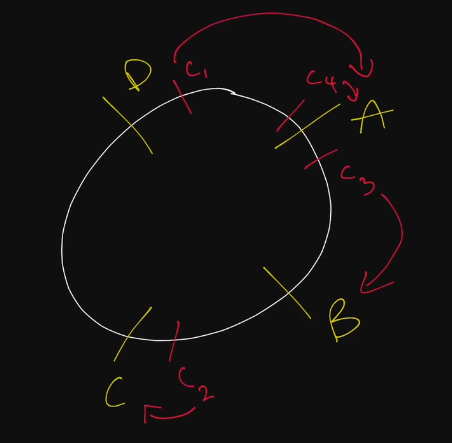 D
C1
C4
A
C3
B
C
C2